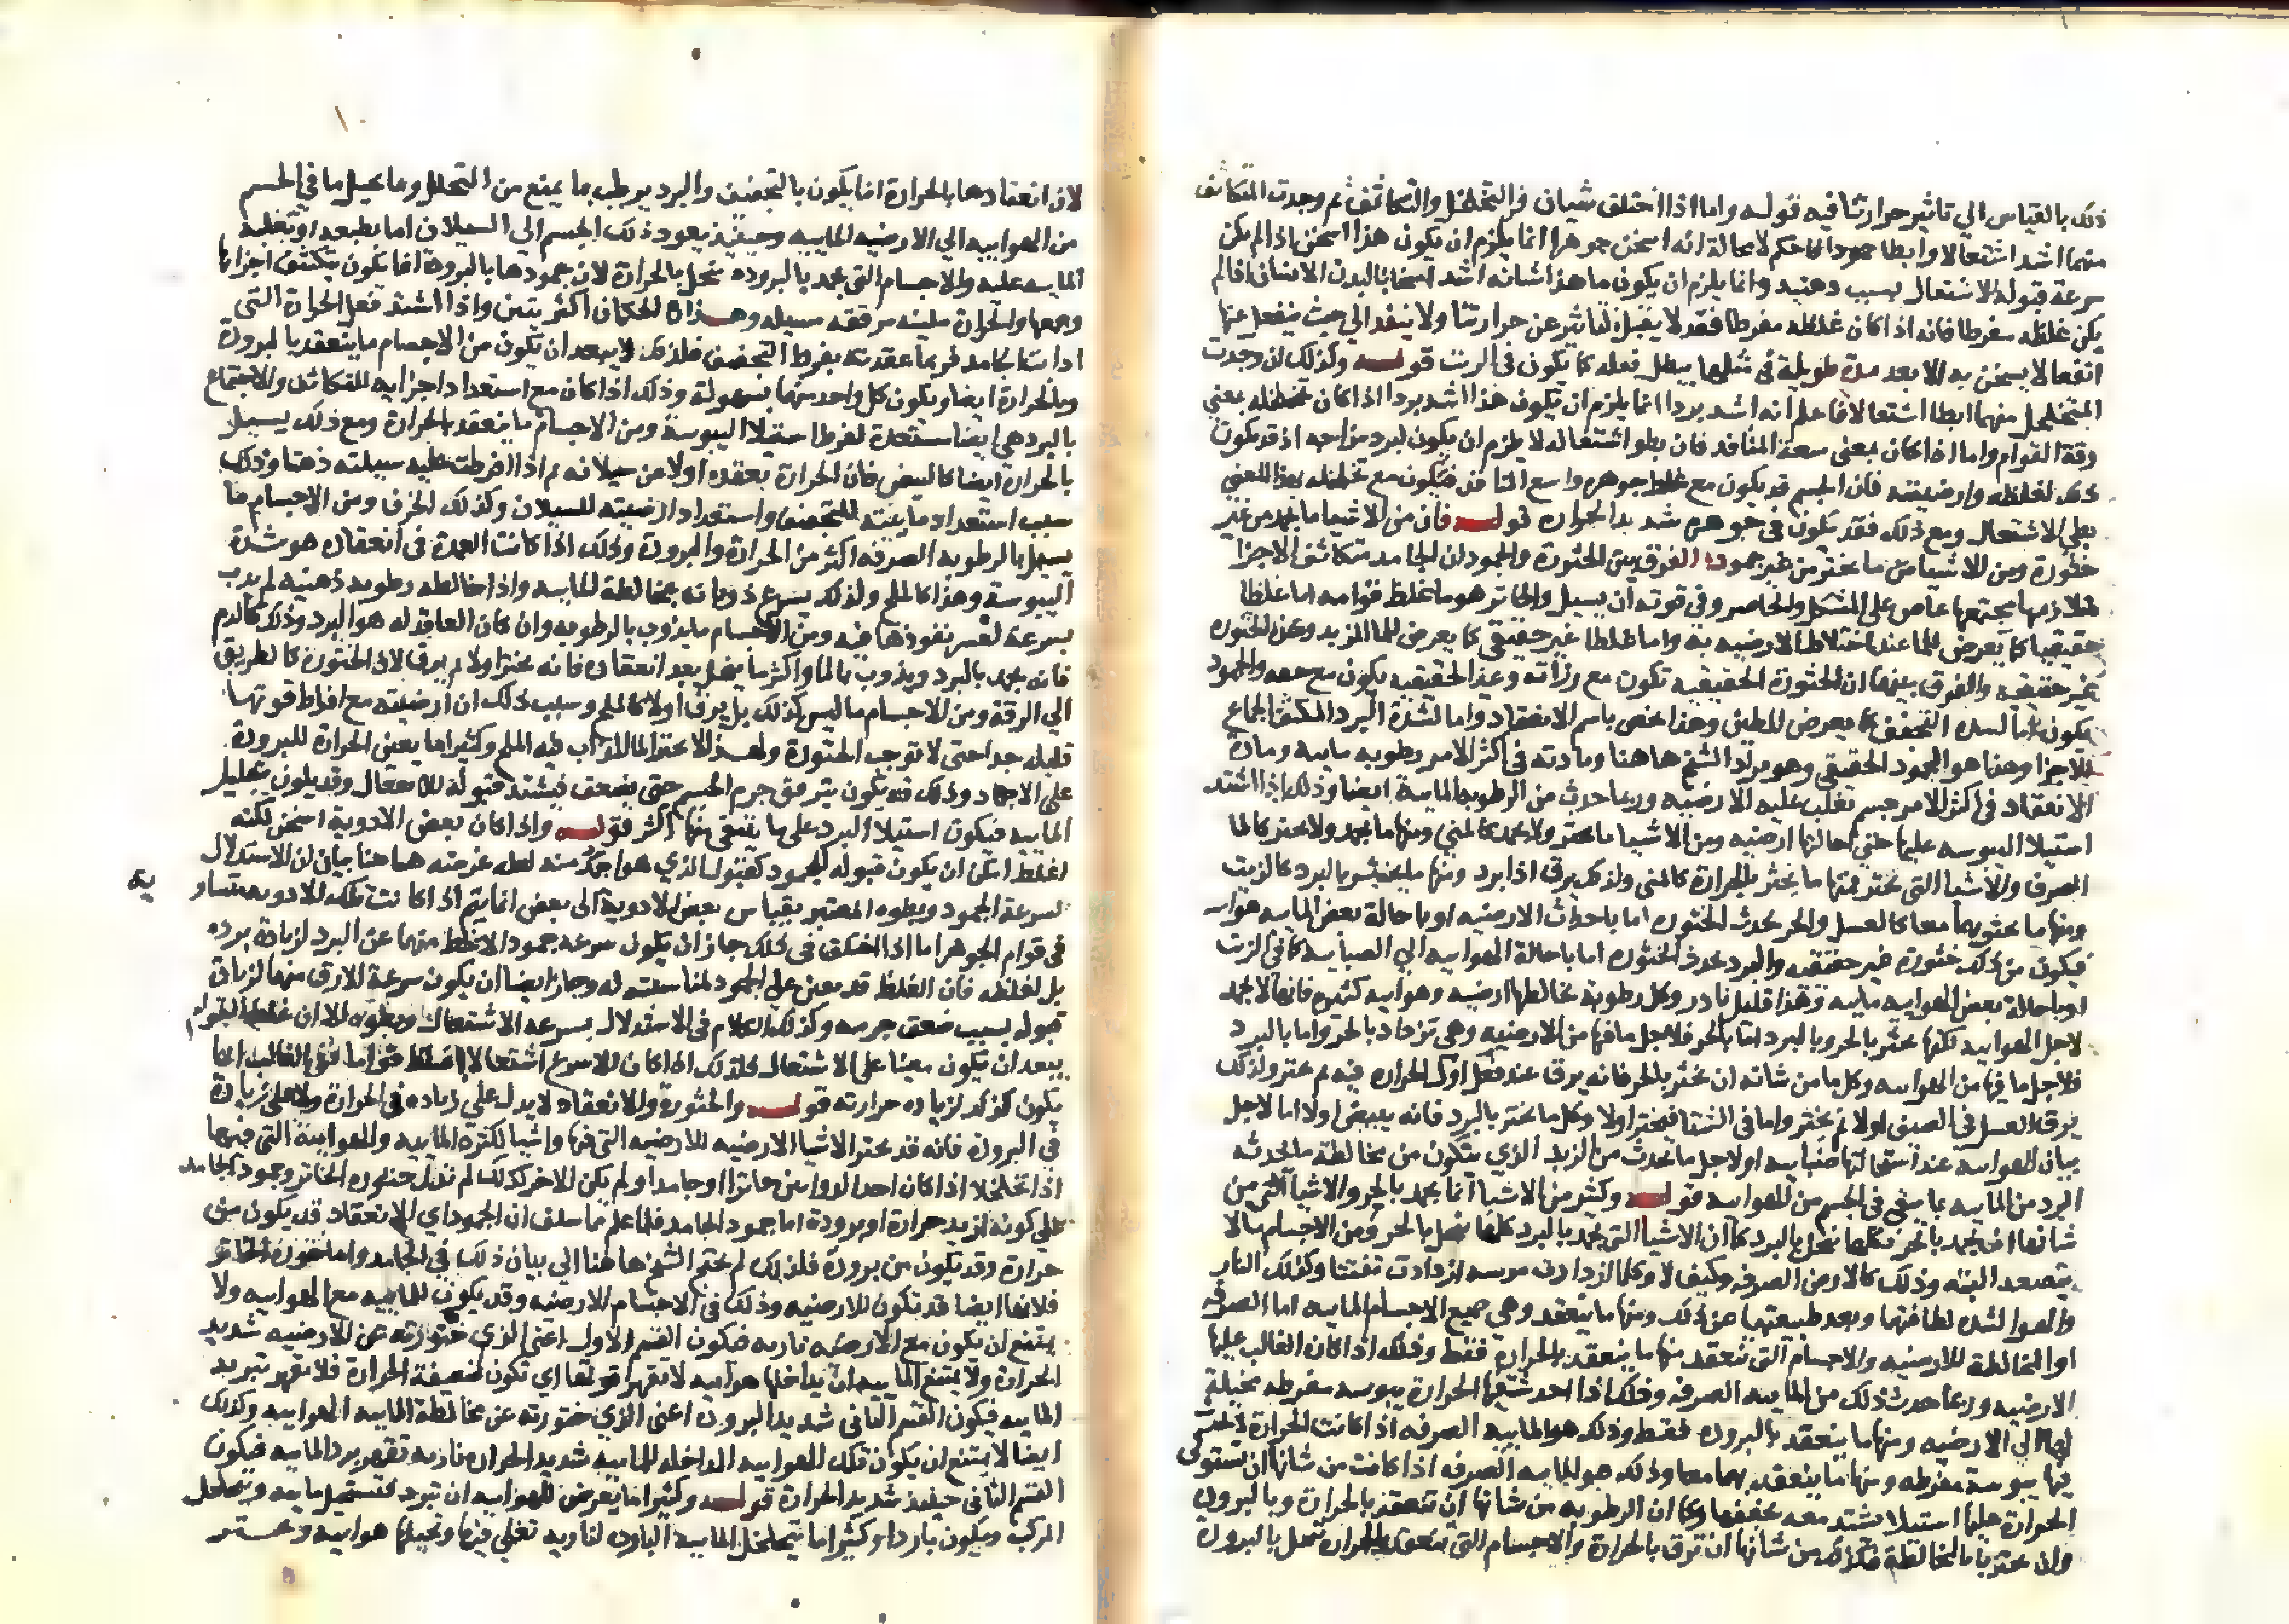 ذلك بالقياس الي تاثير حرارتنا فيه قوله واما اذا اختلف شيان في التخلخل والتكاثف ثم وجدت المتكاثف
منهما اشد اشتعالا وابطا جمودا فاحكم لا محالة انه اسخن جوهرا انما يلزم ان يكون هذا اسخن اذا لم يكن
سرعة قبوله الاشتعال بسبب دهنيته وانما يلزم ان يكون ما هذا شانه اشد اسخانا لبدن الانسان اذا لم
يكن غلظه مفرطا فانه اذا كان غلظه مفرطا فقد لا يقبل التاثير عن حرارتنا ولا ينفذ الي حيث ينفعل عنها
انفعالا يسخن به الا بعد مدة طويلة في مثلها يبطل فعله كما يكون في الزيت قوله وكذلك ان وجدت
المتخلخل منهما ابطا اشتعالا فاعلم انه اشد بردا انما يلزم ان يكون هذا اشد بردا اذا كان تخلخله بمعني
رقة القوام واما اذا كان بمعني سعة المنافذ فان بطو اشتعاله لا يلزم ان يكون لبرد مزاجه اذ قد يكون
ذلك لغلظه وارضيته فان الجسم قد يكون مع غلظ جوهره واسع المنافذ فيكون مع تخلخله بهذا المعني
بطي الاشتعال ومع ذلك فقد يكون في جوهره شديد الحرارة قوله فان من الاشيا ما يجمد من غير
خثورة ومن الاشيا من ما يخثر من غير جمود الفرق بين الخثورة والجمود ان الجامد متكاثف الاجزا
متلازمها مجتمعها عاص علي المشكل والحاصر وفي قوته ان يسيل والخاثر هو ما غلظ قوامه اما غلظا
حقيقيا كما يعرض للما عند اختلاط الارضيه به واما غلظا غير حقيقي كما يعرض للما المزبد وعن الخثورة
غير حقيقيه والفرق بينهما ان الخثورة الحقيقيه تكون مع رزانه وغير الحقيقيه يكون مع خفه والجمود
يكون اما لشدة التجفيف كما يعرض للطين وهذا يخص باسم الانعقاد واما لشدة البرد المكثف الجماع
للاجزا وهذا هو الجمود الحقيقي وهو مراد الشيخ هاهنا ومادته في اكثر الامر رطوبه مايية ومادة
الانعقاد في اكثر الامر جسم تغلب عليه الارضيه وربما حدث من الرطوبه المايية ايضا وذلك اذا اشتد
استيلا اليبوسه عليها حتي احالتها ارضيه ومن الاشيا ما يخثر ولا يجمد كالمني ومنها ما يجمد ولا يخثر كالما
الصرف والاشيا التي تخثر منها ما يخثر بالحرارة كالمني ولذلك يرق اذا برد ومنها ما يخثر بالبرد كالزيت
ومنها ما يخثر بهما معا كالعسل والحر يحدث الخثورة اما باحداث الارضيه او باحالة بعض المايية هواييه
فيكون من ذلك خثورة غير حقيقيه والبرد يحدث الخثورة اما باحالة الهواييه الي الضبابيه كما في الزيت
او باحالة بعض الهواييه ماييه وهذا قليل نادر وكل رطوبة تخالطها ارضيه وهواييه كثيره فانها لا تجمد
لاجل الهواييه لكنها تخثر بالحر وبالبرد اما بالحر فلاجل ما فيها من الارضيه وهي تزداد بالحر واما بالبرد
فلاجل ما فيها من الهواييه وكل ما من شانه ان يخثر بالحر فانه يرق عند فعل اول الحرارة فيه ثم يخثر ولذلك
يرق العسل في الصيف اولا ثم يخثر واما في الشتا فيخثر اولا وكل ما يخثر بالبرد فانه يبيض اولا اما لاجل
بياض الهواييه عند استحالتها ضبابيه او لاجل ما يحدث من الزبد الذي يتكون من مخالطة ما يحدثه
البرد من المايية بما بقي في الجسم من الهواييه قوله وكثير من الاشيا انما يجمد بالحر والاشيا التي من
شانها ان تجمد بالحر فكلها تنحل بالبرد كما ان الاشيا التي تجمد بالبرد كلها تنحل بالحر ومن الاجسام ما لا
يتصعد البته وذلك كالارض الصرفه وكيف لا وكلما ازدادت يبوسه ازدادت تفتتا وكذلك النار
والهوا لشدة لطافتهما وبعد طبيعتهما عن ذلك ومنها ما يتعقد وهي جميع الاجسام الماييه اما الصرفه
او المخالطة للارضيه والاجسام التي تنعقد منها ما ينعقد بالحرارة فقط وذلك اذا كان الغالب عليها
الارضيه وربما حدث ذلك من الماييه الصرفه وذلك اذا احدثت فيها الحرارة يبوسه مفرطه محيلة
لها الي الارضيه ومنها ما ينعقد بالبروده فقط وذلك هو الماييه الصرفه اذا كانت الحرارة لا تحدث
فيها يبوسة مفرطه ومنها ما ينعقد بهما معا وذلك هو الماييه الصرفه اذا كانت من شانها ان تستولي
الحرارة عليها استيلا يشتد معه تجفيفها وكما ان الرطوبه من شانها ان تنعقد بالحرارة وبالبرودة
وان تخثر بالمخالطة فكذلك من شانها ان ترق بالحرارة والاجسام التي تنعقد بالحرارة تنحل بالبرودة
لان انعقادها بالحرارة انما يكون بالتجفيف والبرد يرطب بما يمنع من التحلل وما يحيل ما في الجسم
من الهواييه الي الارضيه الماييه وحينئذ يعود ذلك الجسم الي السيلان اما بطبعه او بتغليبه
الماييه عليه والاجسام التي تجمد بالبروده تنحل بالحرارة لان جمودها بالبرودة انما يكون بتكثيف اجزايها
وجمعها والحرارة ملينه مرققه مسيله وهذان الحكمان اكثريتين واذا اشتد فعل الحرارة التي
اذابت الجامد فربما عقدته بفرط التجفيف فلذلك لا يبعد ان تكون من الاجسام ما ينعقد بالبرودة
وبالحرارة ايضا ويكون كل واحد منهما بسهولة وذلك اذا كان مع استعداد اجزاييه للتكاثف والاجتماع
بالبرد هي ايضا مستعدة لفرط استيلا اليبوسة ومن الاجسام ما ينعقد بالحرارة ومع ذلك يسيل
بالحرارة ايضا كالبيض فان الحرارة تعقده اولا من سيلانه ثم اذا افرطت عليه سيلته دهنا وذلك
بسبب استعداد ماييته للتجفيف واستعداد ارضيته للسيلان وكذلك الخزف ومن الاجسام ما
يسيل بالرطوبه الصرفه اكثر من الحرارة والبرودة وذلك اذا كانت العمدة في انعقاده هو شدة
اليبوسة وهذا كالملح ولذلك يسرع ذوبانه بمخالطة الماييه واذا خالطه رطوبه دهنيه لم يذب
بسرعة لعسر نفوذها فيه ومن الاجسام ما يذوب بالرطوبه وان كان العاقد له هو البرد وذلك كالدم
فانه يجمد بالبرد ويذوب بالما واكثر ما ينحل بعد انعقاده فانه يخثر اولا ثم يرق لان الخثورة كالطريق
الي الرقة ومن الاجسام ما ليس كذلك بل يرق اولا كالملح وسبب ذلك ان ارضيته مع افراط قوتها
قليله جدا حتي لا توجب الخثورة ولهذا لا يخثر الما المذاب فيه الملح وكثيرا ما يعين الحرارة للبرودة
علي الاجماد وذلك قد يكون بترقيق جرم الجسم حتي يضعف فيشتد قبوله للانفعال وقد يكون بتحليل
الماييه فيكون استيلا البرد علي ما يبقي منها اكثر قوله واذا كان بعض الادوية اسخن لكنه
اغلظ امكن ان يكون قبوله للجمود كقبول الذي هو ابرد منه لعله غرضه هاهنا بيان ان الاستدلال
بسرعة الجمود وبطوه المعتبر بقياس بعض الادوية الي بعض انما يتم اذا كانت تلك الادويه متساويه
في قوام الجوهر اما اذا اختلف في ذلك جاز ان يكون سرعه جمود الاغلظ منهما عن البرد لا لزيادة برده
بل لغلظه فان الغلظ قد يعين علي الجمود لمناسبته له وجاز ايضا ان يكون سرعة الارق منهما لزيادة
قبوله بسبب ضعف جرمه وكذلك الكلام في الاستدلال بسرعه الاشتعال وبطوه الا ان غلظ القوام
يبعد ان يكون معينا علي الاشتعال فلذلك اذا كان الاسرع اشتعالا اغلظ قواما فهو في الغالب انما
يكون كذلك لزياده حرارته قوله والخثورة والانعقاد لا يدل علي زياده في الحرارة ولا علي زيادة
في البرودة فانه قد يخثر الاشيا الارضيه للارضيه التي فيها واشيا لكثرة الماييه والهواييه التي فيها
اذا تخلخلا اذا كان احد الدوايين خاثرا او جامدا ولم يكن الاخر كذلك لم تدل خثوره الخاثر وجمود الجامد
علي كونه ازيد حرارة او برودة اما جمود الجامد فلما علم ما سلف ان الجمود اي الانعقاد قد يكون من
حرارة وقد يكون من برودة فلذلك لم يحتج الشيخ هاهنا الي بيان ذلك في الجامد واما خثورة الخاثر
فلانها ايضا قد تكون للارضيه وذلك في الاجسام الارضيه وقد يكون للماييه مع الهواييه ولا
يمتنع ان يكون مع الارضيه ناريه فيكون القسم الاول اعني الذي خثورته عن الارضيه شديد
الحرارة ولا يمتنع الماييه ان يداخلها هواييه لا تقهر قوتها اي تكون ضعيفة الحرارة فلا تقهر تبريد
الماييه فيكون القسم الثاني شديد البرودة اعني الذي خثورته عن مخالطة الماييه الهواييه وكذلك
ايضا لا يمتنع ان يكون تلك الهواييه المداخله للماييه شديد الحرارة ناريه تقهر برد الماييه فيكون
القسم الثاني حينئذ شديد الحرارة قوله وكثيرا ما يعرض للهواييه ان تبرد فتستحيل ماييه ويتخلخل
المركب ويكون باردا وكثيرا ما يتخلخل الماييه البارده لناريه تغلي فيها وتحيلها هواييه وتخثر